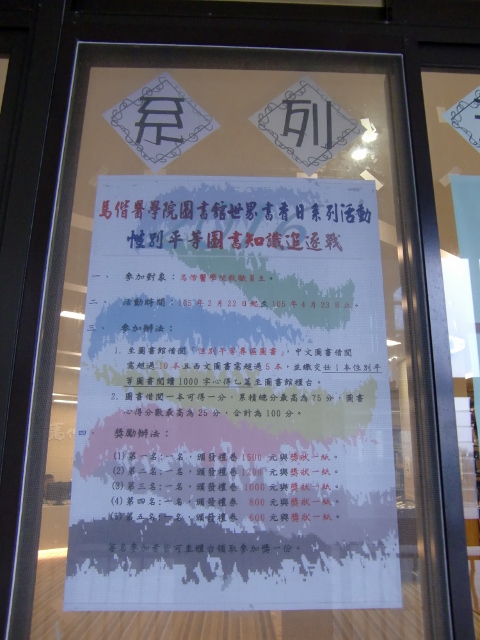 系列
馬偕醫學院圖書館世界書香日系列活動
性別平等圖書知識追逐戰
一、 參加對象：馬偕醫學院教職員生。
二、 活動時間：105年2月22日起至105年4月23日止。
三、 參加辦法：
1. 至圖書館借閱「性別平等專區圖書」，中文圖書借閱
需超過10本且西文圖書需超過5本，並繳交任1本性別平
等圖書閱讀1000字心得乙篇至圖書館櫃台。
2. 圖書借閱一本可得一分，累積總分最高為75分，圖書
心得分數最高為25分，合計為100分。
四、 獎勵辦法：
(1) 第一名:一名，頒發禮卷1500元與獎狀一紙。
(2) 第二名:一名，頒發禮卷1200元與獎狀一紙。
(3) 第三名:一名，頒發禮卷1000元與獎狀一紙。
(4) 第四名:一名，頒發禮卷 800元與獎狀一紙。
(5) 第五名:一名，頒發禮卷 600元與獎狀一紙。
報名參加者皆可至櫃台領取參加獎一份。